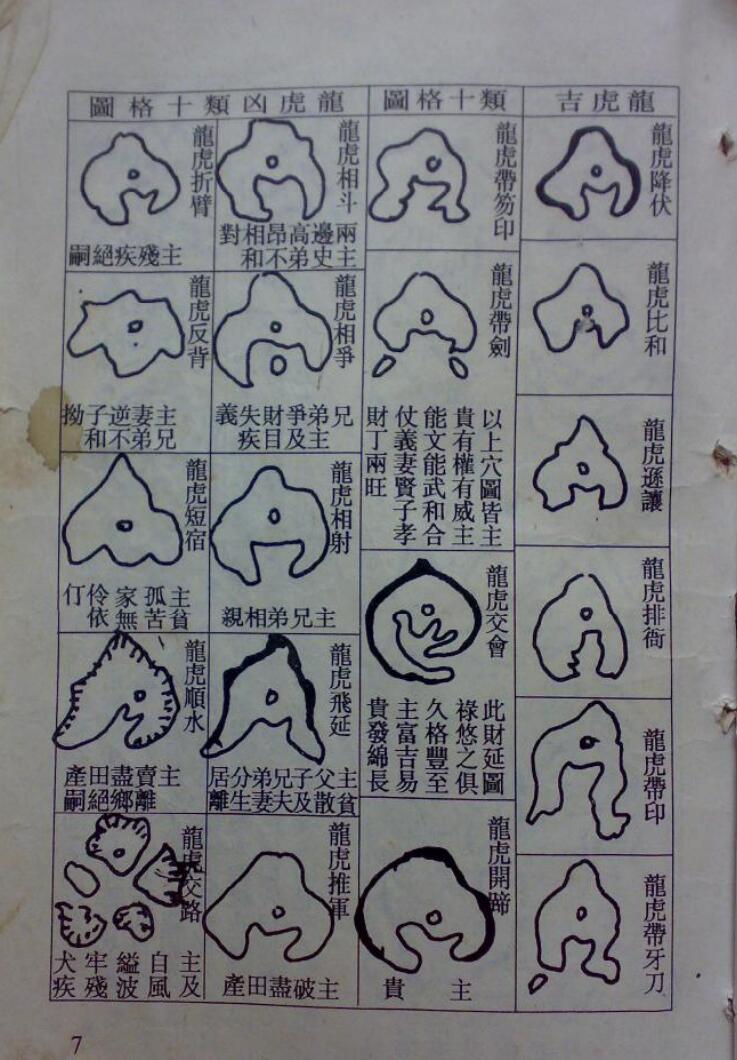 龍虎吉
類十格圖
龍虎凶類十格圖
龍虎降伏
龍虎比和
龍虎遜讓
龍虎排衙
龍虎帶印
龍虎帶牙刀
龍虎帶笏印
龍虎帶劍
以上穴圖皆主
貴有權有威主
能文能武和合
仗義妻賢子孝
財丁兩旺
龍虎交會
此財延圖
祿悠之俱
久格豐至
主富吉易
貴發綿長
龍虎開蹄
主貴
龍虎相斗
兩邊高昂相對
主史弟不和
龍虎相爭
兄弟爭財失義
主及目疾
龍虎相射
主兄弟相親
龍虎飛延
主父子兄弟分居
貧散及夫妻生離
龍虎推軍
主破盡田產
龍虎折臂
主殘疾絕嗣
龍虎反背
主妻逆子拗
兄弟不和
龍虎短宿
主孤家伶仃
貧苦無依
龍虎順水
主賣盡田產
離鄉絕嗣
龍虎交路
主自縊牢犬
及風波殘疾
7